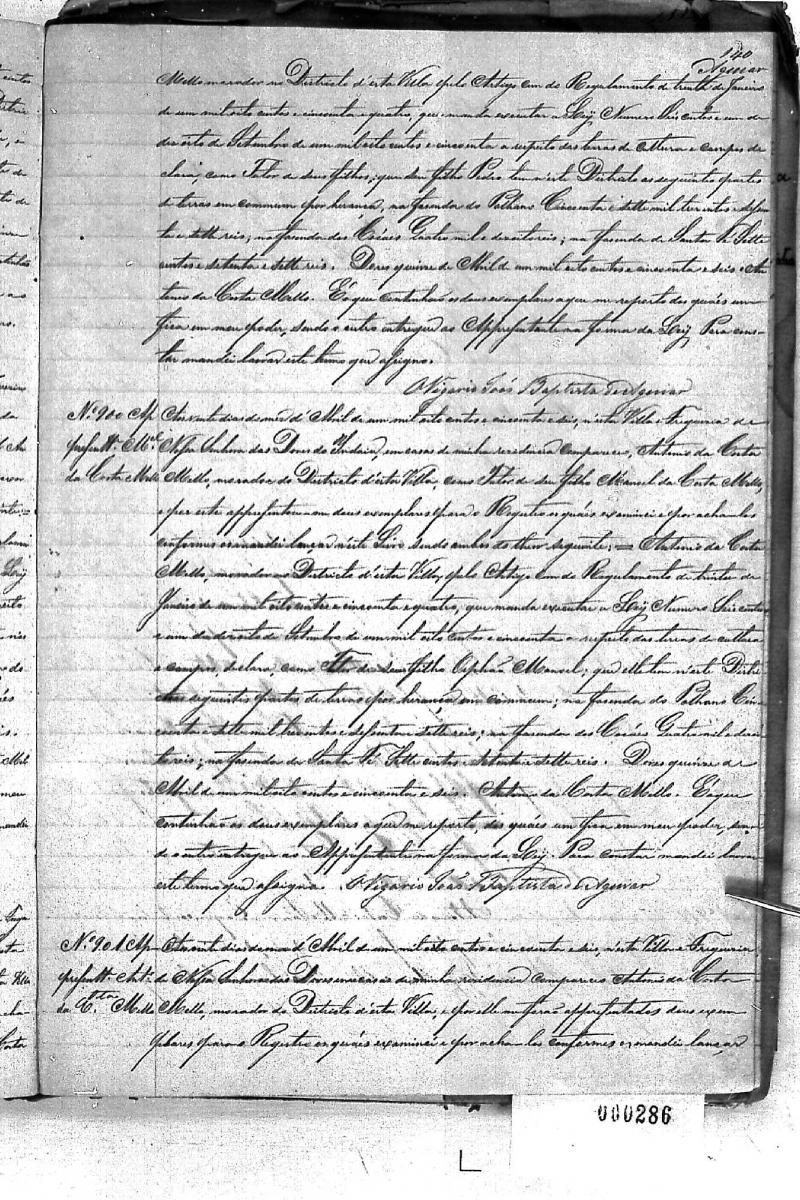 140
Aguiar
Mello morador no Districto d'esta Villa, pelo Artigo cem do Regulamento de trinta de Janeiro
de um mil oito centos e cincoenta e quatro, que manda executar a Ley Numero Seis centos e um de
dezoito de Setembro de um mil oito centos e cincoenta a respeito das terras de cultura e campos de
clara, como Tutor de seus filhos; que seu filho Pedro tem n'este Districto as seguintes partes
de terras em commum e por herança, na fasenda do Palhano Cincoenta e sette mil trezentos e
ta e sette reis; na fasenda dos Cocáes Quatro mil e dezoito reis; na fasenda de Santa Fé Sette
centos e setenta e sette reis. Dores quinze de Abril de um mil oito centos e cincoenta e seis. An-
tonio da Costa Mello. E o que continhão os dous exemplares a que me reporto, dos quáes um
fica em meu poder, sendo o outro entregue ao Appresentante na forma da Ley. Para cons-
tar mandei lavrar este termo que assigno.
O Vigario João Baptista de Aguiar
Nº 900 Ap- Aos vinte dias do mez d'Abril de um mil oito centos e cincoenta e seis, n'esta Villa e Freguesia de
presente Mel. Nossa Senhora das Dores do Indaiá, em casas de minha residencia compareceo, Antonio da Costa
da Costa Mello Mello, morador do Districto d'esta Villa, como Tutor de seu filho Manoel da Costa Mello,
e por este appresentou-me dous exemplares para o Registro os quáes examinei e por acha-los
conformes os mandei lançar n'este Livro sendo ambos do theor seguinte; = Antonio da Costa
Mello, morador no Districto d'esta Villa, pelo Artigo cem do Regulamento de trinta de
Janeiro de um mil oito centos e cincoenta e quatro, que manda executar a Ley Numero Seis centos
e um de dezoito de Setembro de um mil oito centos e cincoenta a respeito das terras de cultura
e campos, declara, como Tutor de seu filho Orphão Manoel; que elle tem n'este Distri-
cto as seguintes partes de terras e por herança em commum; na fasenda do Palhano Cin-
coenta e sette mil trezentos e e sette reis; na fasenda dos Cocáes Quatro mil e dezoi-
to reis; na fasenda de Santa Fé Sette centos e setenta e sette reis. Dores quinze de
Abril de um mil oito centos e cincoenta e seis. Antonio da Costa Mello. E o que
continhão os dous exemplares a que me reporto, dos quáes um fica em meu poder, sen-
do o outro entregue ao Appresentante na forma da Ley. Para constar mandei lavrar
este termo que assigno. O Vigario João Baptista de Aguiar
Nº 901 Ap- Aos vinte dias do mez d'Abril de um mil oito centos e cincoenta e seis, n'esta Villa e Freguesia
presente Ant. de Nossa Senhora das Dores em casas de minha residencia compareceo Antonio da Costa
da Cta Mello Mello, morador do Districto d'esta Villa, e por elle me forão appresentados dous exem-
plares para o Registro os quáes examinei e por acha-los conformes os mandei lançar
000286
L